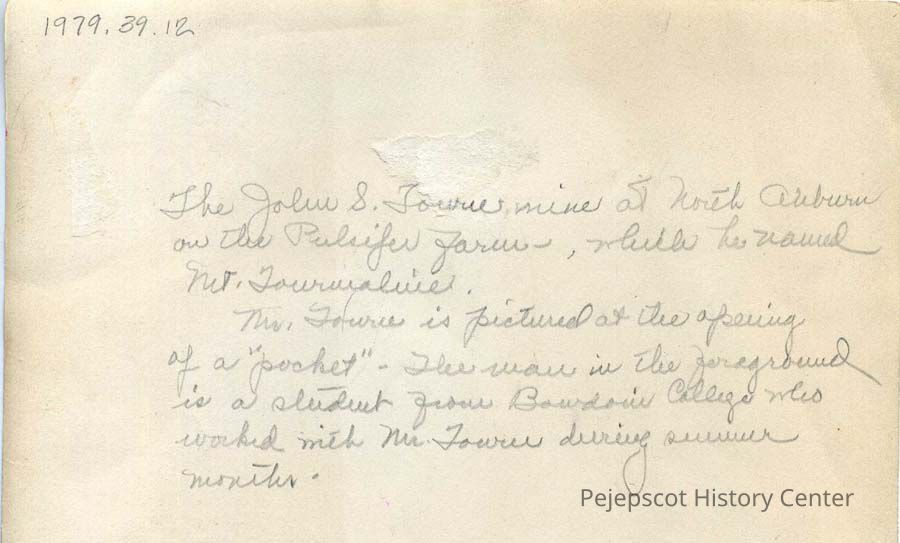 1979.39.12
The John S. Towne mine at North Auburn
on the Pulsifer farm -, which he named
Mt. Tourmaline.
Mr. Towne is pictured at the opening
of a "pocket" - The man in the foreground
is a student from Bowdoin College who
worked with Mr. Towne during summer
months.
Pejepscot History Center